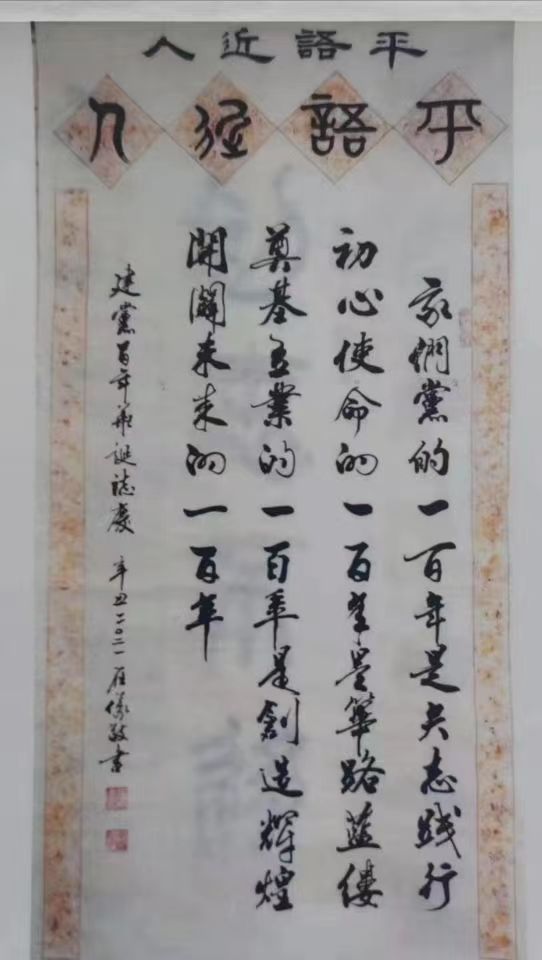 平語近人
平語近人
我們黨的一百年是矢志踐行
初心使命的一百年是篳路藍縷
奠基立業的一百年是創造輝煌
開闢未来的一百年
建黨百年華誕誌慶 辛丑二〇二一 敬書